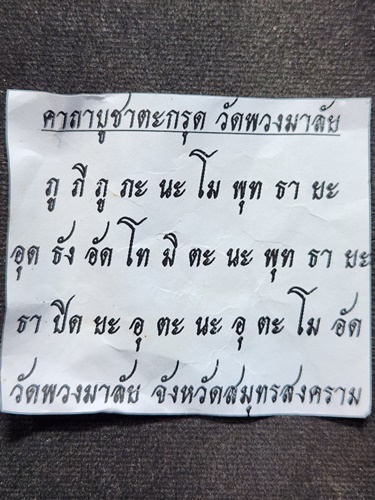 คาถาบูชาตะกรุด วัดพวงมาลัย
ภู ภี ภู ภะ นะ โม พุท ธา ยะ
อุด ธัง อัด โท มี ตะ นะ พุท ธา ยะ
ธา ปิด ยะ อุ ตะ นะ อุ ตะ โม อัด
วัดพวงมาลัย จังหวัดสมุทรสงคราม